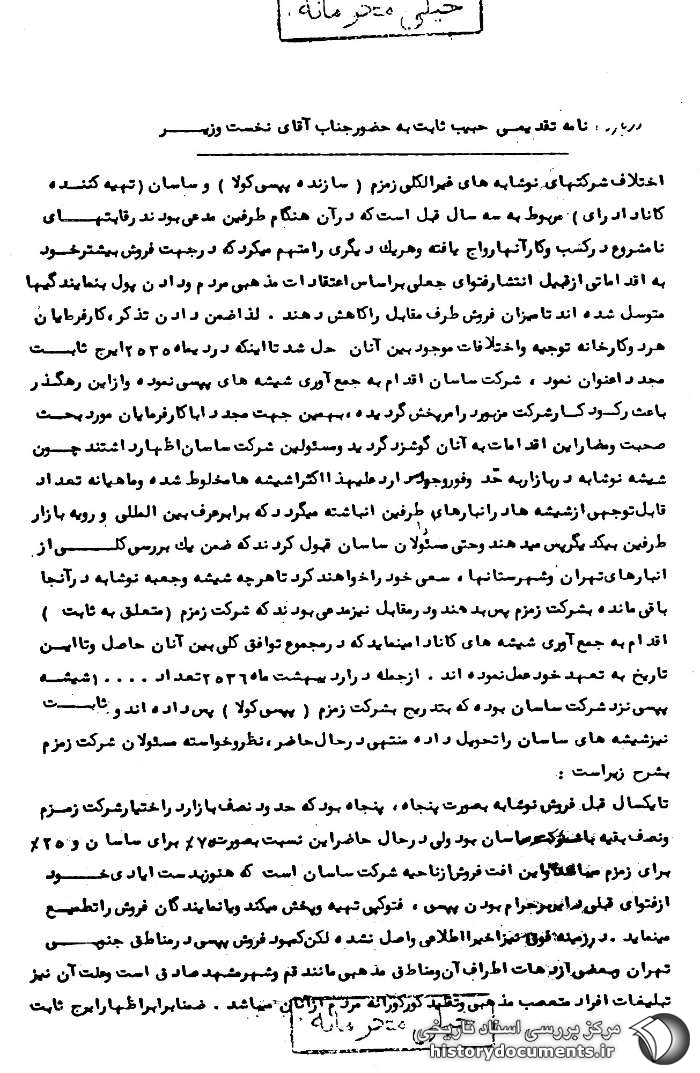 خیلی محرمانه
درباره : نامه تقدیمی حبیب ثابت به حضور جناب آقای نخست وزیر
اختلاف شرکتهای نوشابه های غیرالکلی زمزم ( سازنده پپسی کولا ) و ساسان (تهیه کننده
کانادادرای ) مربوط به سه سال قبل است که درآن هنگام طرفین مدعی بودند رقابتهای
نامشروع درکسب وکارآنها رواج یافته وهریک دیگری را متهم میکرد که درجهت فروش بیشترخود
به اقداماتی ازقبیل انتشارفتوای جعلی براساس اعتقادات مذهبی مردم ودادن پول بنمایندگیها
متوسل شده اند تامیزان فروش طرف مقابل راکاهش دهند . لذاضمن دادن تذکر، کارفرمایان
هردوکارخانه توجیه واختلافات موجود بین آنان حل شد تااینکه دردیماه ۲۵۳۵ ایرج ثابت
مجدداعنوان نمود ، شرکت ساسان اقدام به جمع آوری شیشه های پپسی نموده وازاین رهگذر
باعث رکود کارشرکت مزبوررامرپخش گردیده ، بهمین جهت مجددا باکارفرمایان مورد بحث
صحبت ومضاراین اقدامات به آنان گوشزد گردید ومسئولین شرکت ساسان اظهارداشتند چون
شیشه نوشابه دربازاربه حد وفوروجود دارد علیهذا اکثرا شیشه ها مخلوط شده وماهیانه تعداد
قابل توجهی ازشیشه ها درانبارهای طرفین انباشته میگردد که برابرعرف بین المللی و رویه بازار
طرفین بیکدیگرپس میدهند وحتی مسئولان ساسان قبول کردند که ضمن یک بررسی کلی از
انبارهای تهران وشهرستانها ، سعی خود راخواهند کرد تاهرچه شیشه وجعبه نوشابه درآنجا
باقی مانده بشرکت زمزم پس بدهند ودرمقابل نیزمدعی بودند که شرکت زمزم (متعلق به ثابت )
اقدام به جمع آوری شیشه های کانادا مینماید که درمجموع توافق کلی بین آنان حاصل وتااین
تاریخ به تعهد خود عمل نموده اند . ازجمله درارديبهشت ماه ۲۵۳۶ تعداد ۱۰۰۰۰ شیشه
پپسی نزد شرکت ساسان بوده که بتدریج بشرکت زمزم ( پپسی کولا ) پس داده اند و ثابت
نیزشیشه های ساسان راتحویل داده منتهی درحال حاضر، نظروخواسته مسئولان شرکت زمزم
بشرح زیراست :
تایکسال قبل فروش نوشابه بصورت پنجاه ، پنجاه بود که حدود نصف بازاردراختیارشرکت زمزم
ونصف بقیه ساسان بود ولی درحال حاضراین نسبت بصورت ۷۵٪ برای ساسان و ۲۵٪
برای زمزم واین افت فروش ازناحیه شرکت ساسان است که هنوزبدست ایادی خود
ازفتوای قبلی حرام بودن پپسی ، فتوکپی تهیه وپخش میکند ویا نمایندگان فروش راتطمیع
مینماید . درزمینه فوق نیزاخیرا اطلاعی واصل نشده لکن کمبود فروش پپسی درمناطق جنوبی
تهران وبعضی ازدهات اطراف آن ومناطق مذهبی مانند قم وشهرمشهد صادق است وعلت آن نیز
تبلیغات افراد متعصب مذهبی وتقلید کورکورانه مردم ازآنان میباشد . ضمنا برابراظهارایرج ثابت
خیلی محرمانه
مرکز بررسی اسناد تاریخی
historydocuments.ir